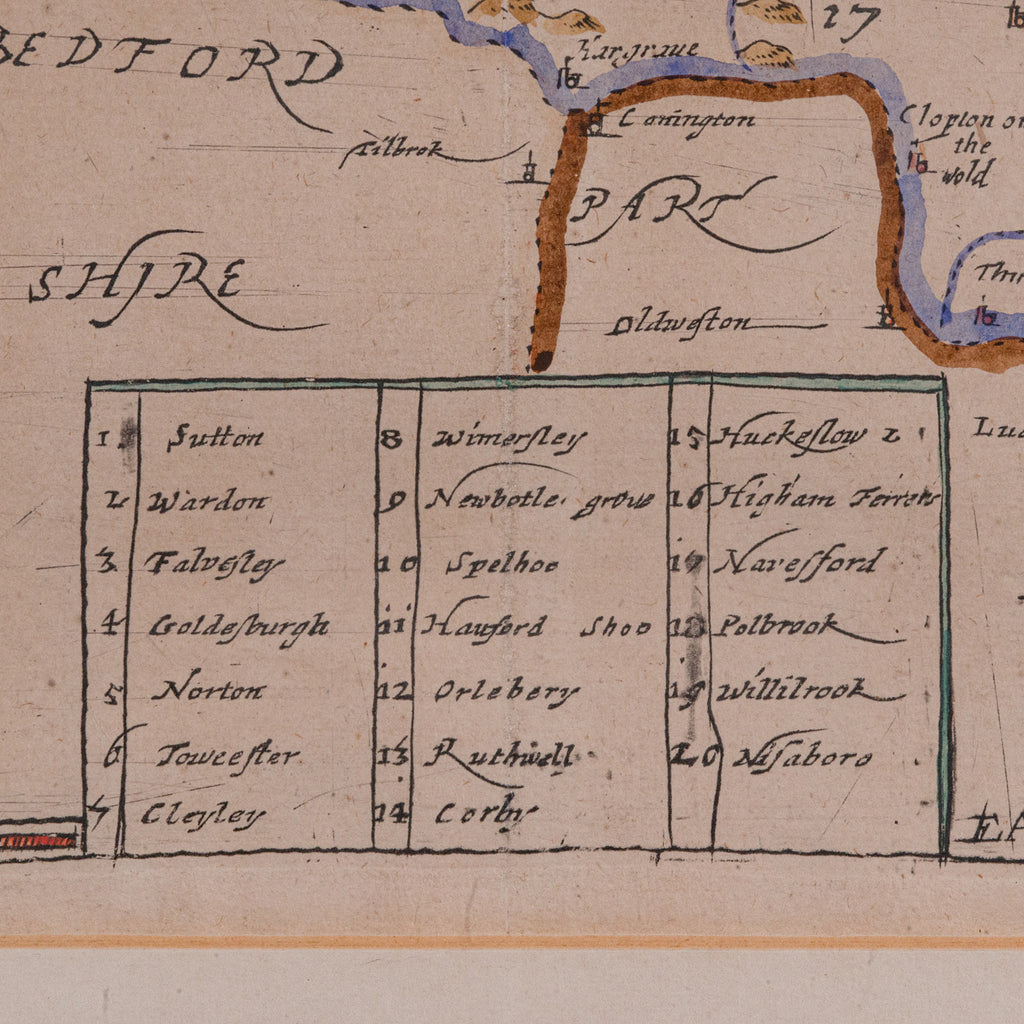 BEDFORD
17
Hargraue
Conington
Clopton on
the
wold
Tilbrok
PART
SHIRE
Oldweston
1 Sutton
2 Wardon
3 Falvesley
4 Goldesburgh
5 Norton
6 Towcester
7 Cleyley
8 Wimersley
9 Newbotle grove
10 Spelhoo
11 Hauford Shoo
12 Orlebery
13 Ruthwell
14 Corby
15 Huckeslow
16 Higham Ferrers
17 Navesford
18 Polbrook
19 Willilrook
20 Nisaboro